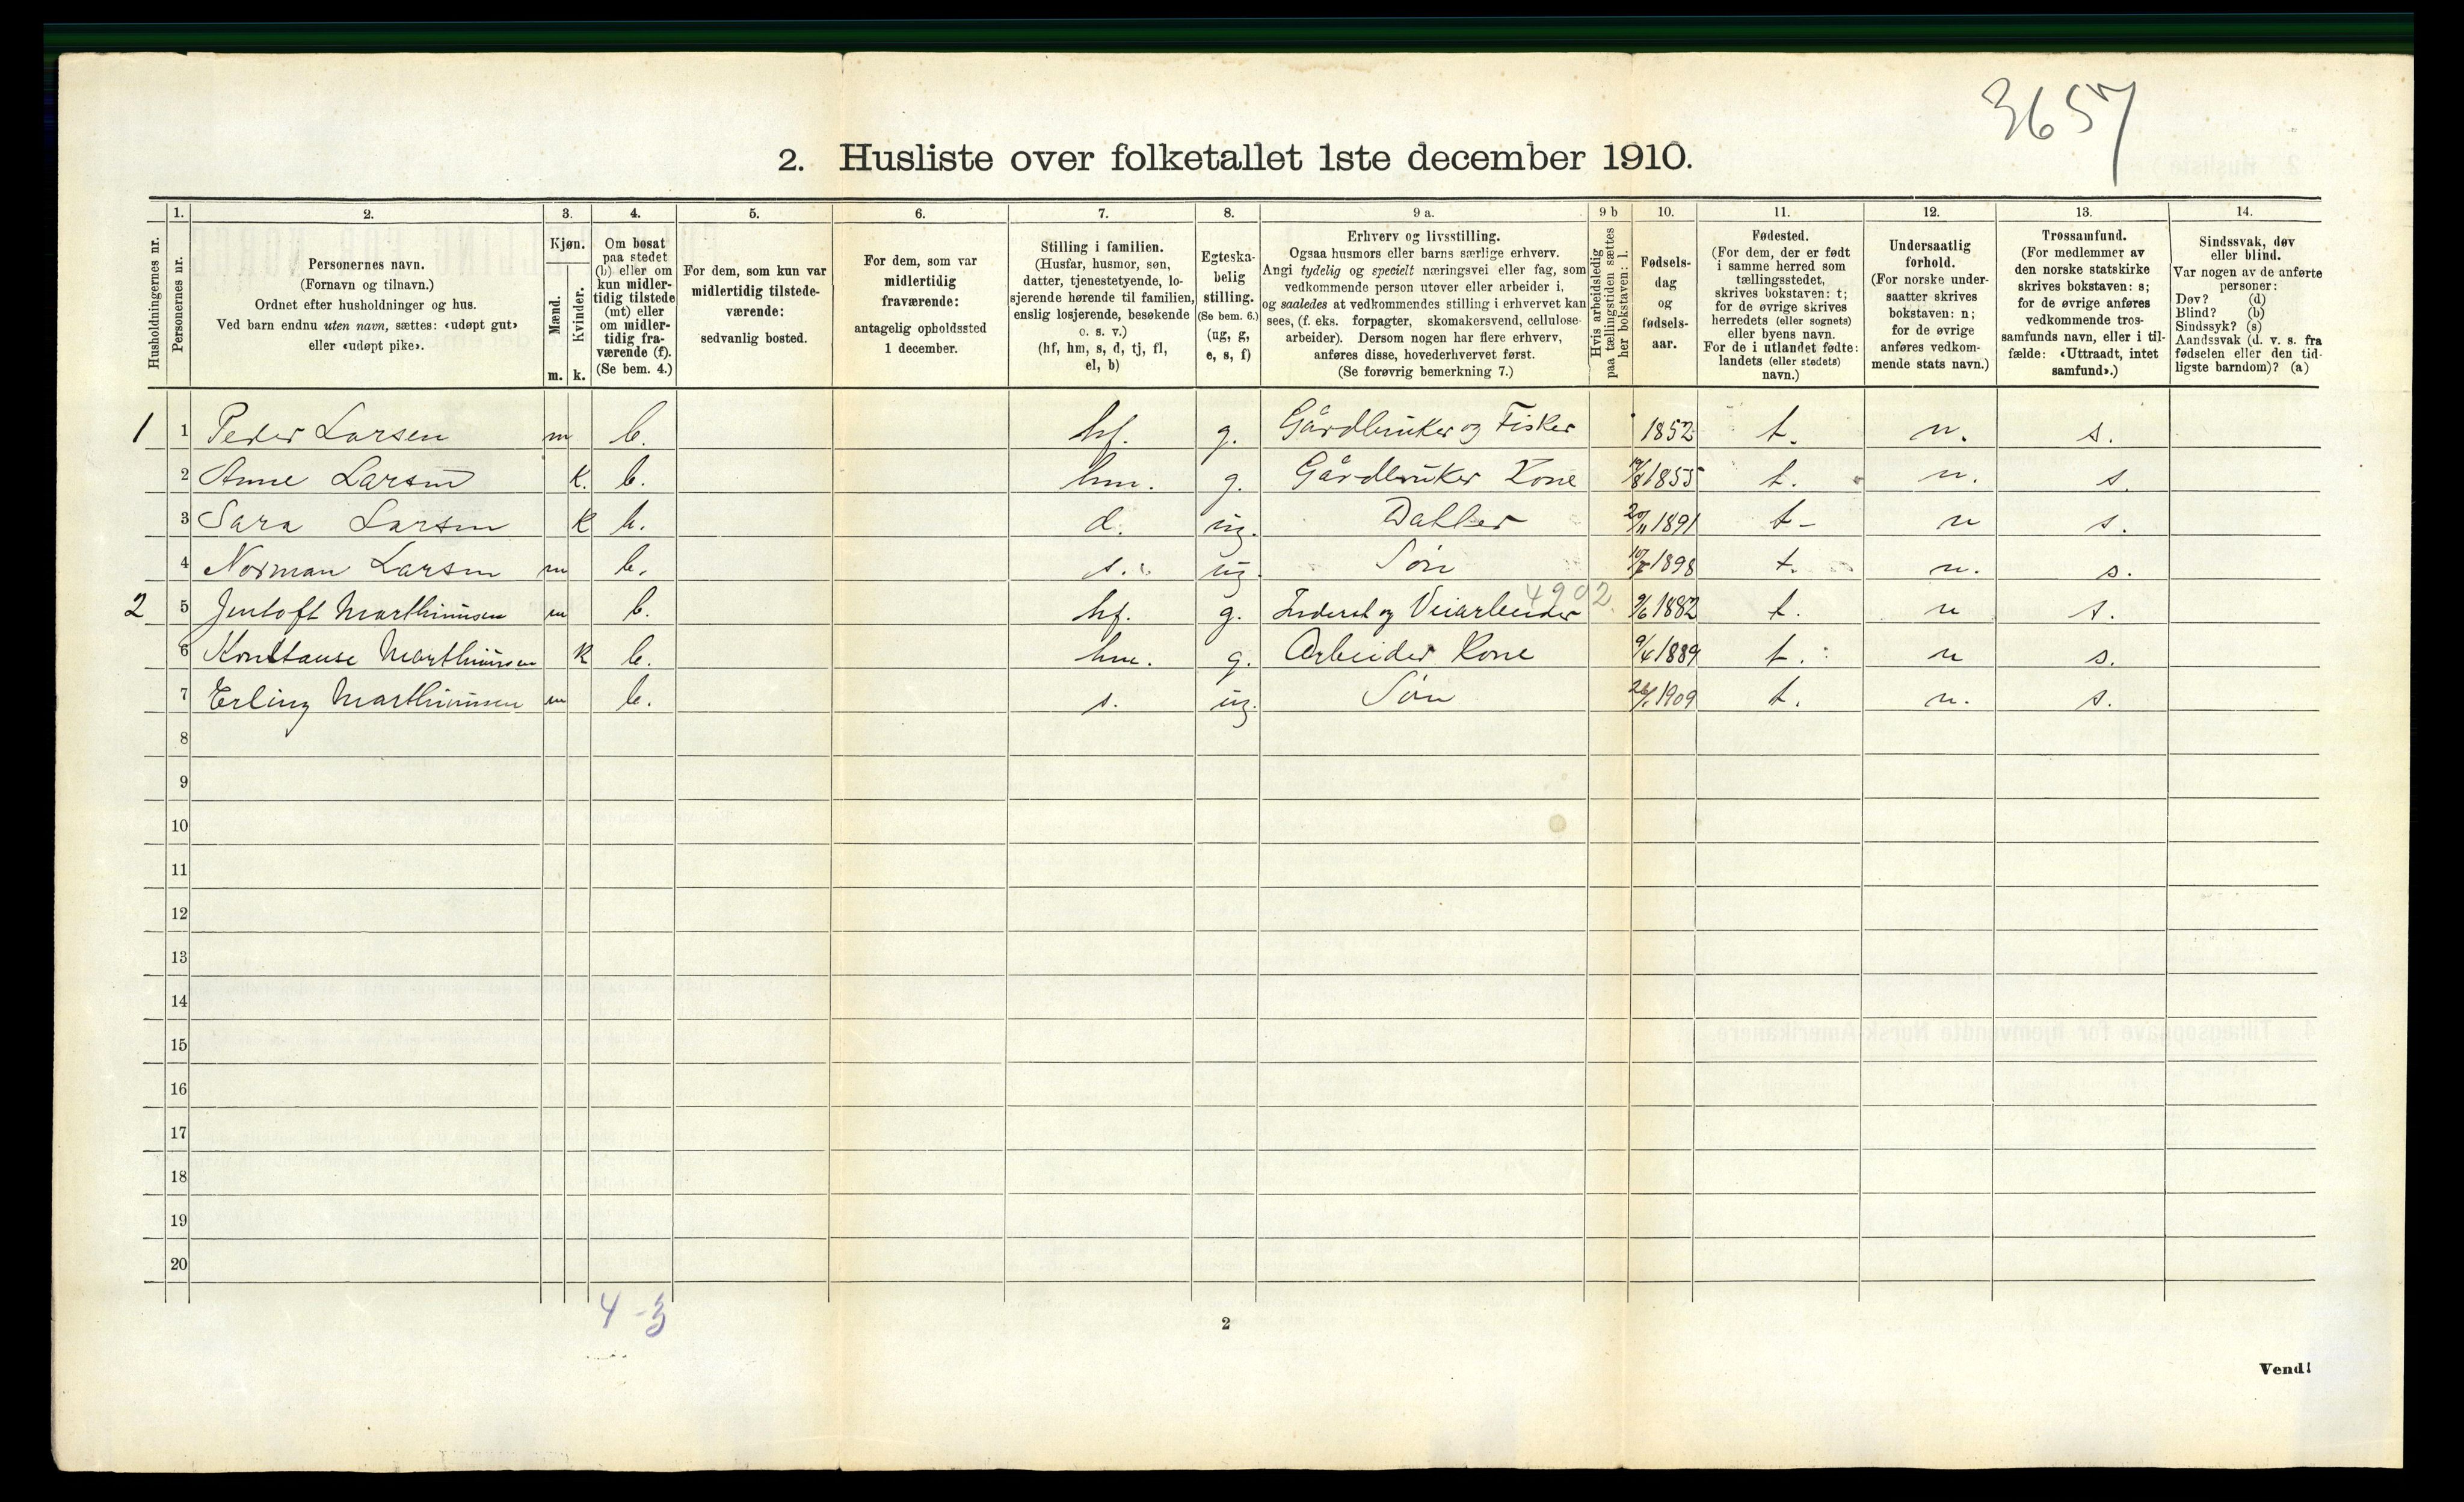 3657
2. Husliste over folketallet 1ste december 1910.
1. 2. 3. 4. 5. 6. 7. 8. 9 a. 9 b 10. 11. 12. 13. 14.
Husholdningernes nr.
Personernes nr.
Personernes navn.
(Fornavn og tilnavn.)
Ordnet efter husholdninger og hus.
Ved barn endnu uten navn, sættes: «udøpt gut»
eller «udøpt pike».
Kjøn.
Mænd.
Kvinder.
m. k.
Om bosat
paa stedet
(b) eller om
kun midler-
tidig tilstede
(mt) eller
om midler-
tidig fra-
værende (f).
(Se bem. 4.)
For dem, som kun var
midlertidig tilstede-
værende:
sedvanlig bosted.
For dem, som var
midlertidig
fraværende:
antagelig opholdssted
1 december.
Stilling i familien.
(Husfar, husmor, søn,
datter, tjenestetyende, lo-
sjerende hørende til familien,
enslig losjerende, besøkende
o. s. v.)
(hf, hm, s, d, tj, fl,
el, b)
Egteska-
belig
stilling.
(Se bem. 6.)
(ug, g,
e, s, f)
Erhverv og livsstilling.
Ogsaa husmors eller barns særlige erhverv.
Angi tydelig og specielt næringsvei eller fag, som
vedkommende person utøver eller arbeider i,
og saaledes at vedkommendes stilling i erhvervet kan
sees, (f. eks. forpagter, skomakersvend, cellulose-
arbeider). Dersom nogen har flere erhverv,
anføres disse, hovederhvervet først.
(Se forøvrig bemerkning 7.)
Hvis arbeidsledig
paa tællingstiden sættes
her bokstaven: l.
Fødsels-
dag
og
fødsels-
aar.
Fødested.
(For dem, der er født
i samme herred som
tællingsstedet,
skrives bokstaven: t;
for de øvrige skrives
herredets (eller sognets)
eller byens navn.
For de i utlandet fødte:
landets (eller stedets)
navn.)
Undersaatlig
forhold.
(For norske under-
saatter skrives
bokstaven: n;
for de øvrige
anføres vedkom-
mende stats navn.)
Trossamfund.
(For medlemmer av
den norske statskirke
skrives bokstaven: s;
for de øvrige anføres
vedkommende tros-
samfunds navn, eller i til-
fælde: «Uttraadt, intet
samfund».)
Sindssvak, døv
eller blind.
Var nogen av de anførte
personer:
Døv? (d)
Blind? (b)
Sindssyk? (s)
Aandssvak (d. v. s. fra
fødselen eller den tid-
ligste barndom)? (a)
1 1 Peder Larsen m b. hf. g. Gårdbruker og Fisker 1852 t. n. s.
2 Anne Larsen k. b. hm. g. Gårdbruker Kone 1855 t. n. s.
3 Sara Larsen k b. d. ug. Datter 20/11 1891 t- n s.
4 Norman Larsen m b. s. ug. Søn 1898 t. n. s.
4902
2 5 Jentoft Marthinusen m b. hf. g. Inderst og Veiarbeider 9/6 1882 t. n s.
6 Konstanse Marthinusen k b. hm. g. Arbeider Kone 9/4 1889 t. n s.
7 Erling Marthinusen m b. s. ug. Søn 26/1 1909 t. n. s.
8
9
10
11
12
13
14
15
16
17
18
19
20
4-3
2
Vend!